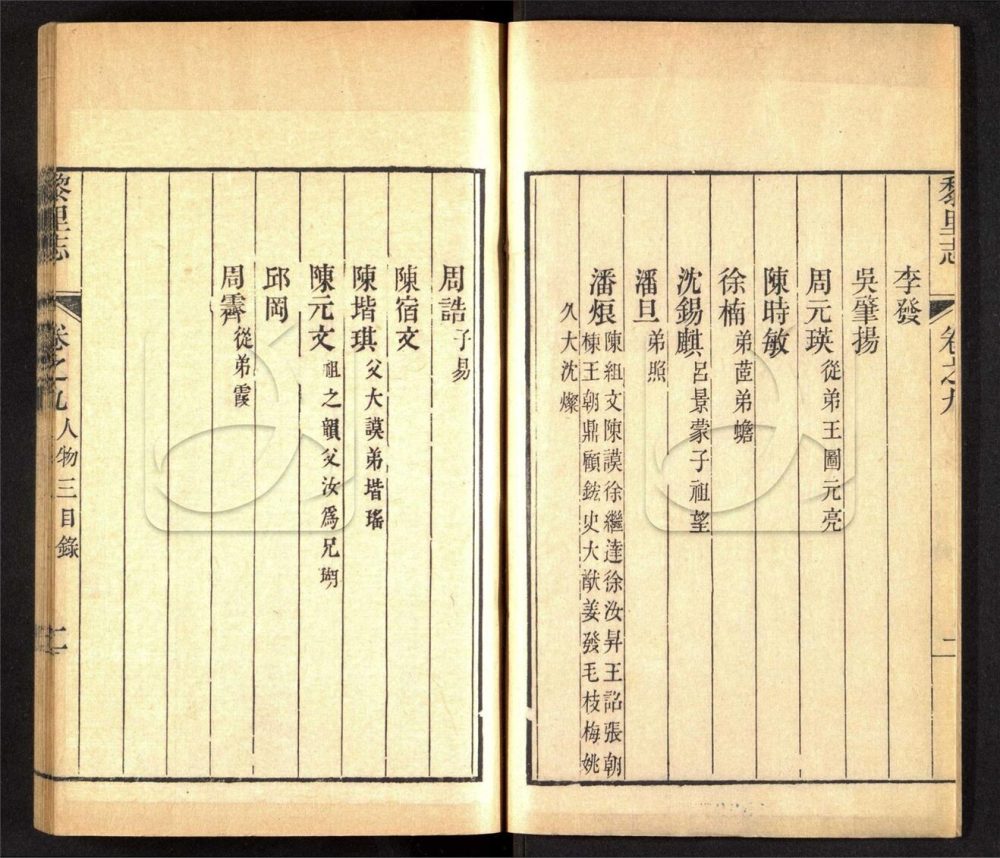 黎里志 卷之九 二
李發
吳肇揚
周元瑛 從弟王圖元亮
陳時敏
徐楠 弟茝弟蟾
沈錫麒 呂景蒙子祖望
潘旦 弟照
潘烺 陳組文陳謨徐繼達徐汝昇王詔張朝
棟王朝鼎顧鋐史大猷姜發毛枝梅姚
久大沈燦
周誥 子易
陳宿文
陳堦琪 父大謨弟堦瑤
陳元文 祖之韻父汝爲兄瑚
邱岡
周霽 從弟霞
黎里志 卷之九 人物三目錄 二